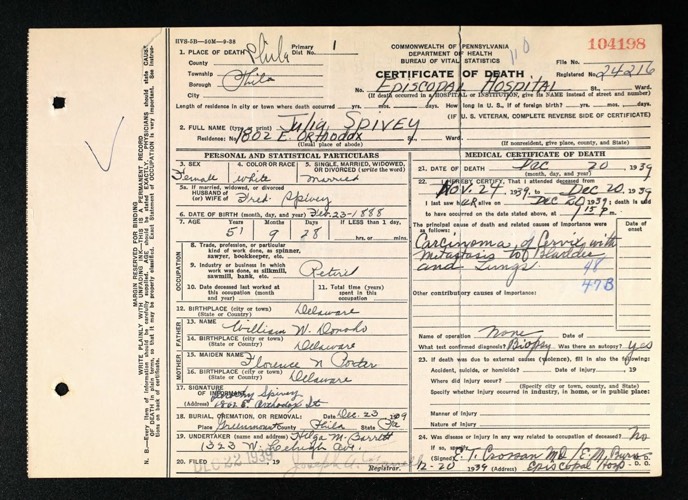 HVS-5B—50M—9-38
104198
COMMONWEALTH OF PENNSYLVANIA
DEPARTMENT OF HEALTH
BUREAU OF VITAL STATISTICS
CERTIFICATE OF DEATH
File No.
Registered No. 24216
1. PLACE OF DEATH
Phila
Primary 1
County
Township
Borough
City
Phila
No. EPISCOPAL HOSPITAL St., Ward.
(If death occurred in a HOSPITAL or INSTITUTION, give its NAME instead of street and number)
Length of residence in city or town where death occurred yrs. mos. days. How long in U. S., if of foreign birth? yrs. mos. days
IF U. S. VETERAN, COMPLETE REVERSE SIDE OF CERTIFICATE
2. FULL NAME (type or print) Julia SPIVEY
Residence: No. 1802 E. Orthodox St.
(Usual place of abode) (If nonresident, give place, county, and State)
PERSONAL AND STATISTICAL PARTICULARS
3. SEX Female
4. COLOR OR RACE white
5. SINGLE, MARRIED, WIDOWED, OR DIVORCED (write the word) Married
5a. If married, widowed, or divorced
HUSBAND of
(or) WIFE of Fred Spivey
6. DATE OF BIRTH (month, day, and year) Feb-23-1888
7. AGE Years 51 Months 9 Days 28 IF LESS than 1 day, hrs. or min.
OCCUPATION
8. Trade, profession, or particular kind of work done, as spinner, sawyer, bookkeeper, etc.
9. Industry or business in which work was done, as silkmill, sawmill, bank, etc. Retired
10. Date deceased last worked at this occupation (month and year)
11. Total time (years) spent in this occupation
12. BIRTHPLACE (city or town) Delaware
(State or Country)
FATHER
13. NAME William W. Donoho
14. BIRTHPLACE (city or town) Delaware
(State or Country)
MOTHER
15. MAIDEN NAME Florence N Porter
16. BIRTHPLACE (city or town) Delaware
(State or Country)
17. SIGNATURE Spivey
(Address) 1802 E. Orthodox St
18. BURIAL, CREMATION, OR REMOVAL: Date Dec. 23 1939
Place Greenmount County Phila State Pa
19. UNDERTAKER (name and address) Helga M. Barrett
1323 W. Lehigh Ave.
20. FILED DEC 22 1939 Joseph Registrar.
MEDICAL CERTIFICATE OF DEATH
21. DATE OF DEATH Dec 20 1939
(month, day, year)
22. I HEREBY CERTIFY, That I attended deceased from
Nov. 24, 1939, to Dec 20, 1939
I last saw her alive on Dec 20, 1939; death is said
to have occurred on the date stated above, at 1:15 P m.
The principal cause of death and related causes of importance were as follows:
Date of onset
Carcinoma, of Cervix with
metastasis to Bladder
and Lungs 48
47B
Other contributory causes of importance:
Name of operation none Date of
What test confirmed diagnosis? Biopsy Was there an autopsy? yes
23. If death was due to external causes (violence), fill in also the following:
Accident, suicide, or homicide? Date of injury , 19
Where did injury occur?
(Specify city or town, county, and State)
Specify whether injury occurred in industry, in home, or in public place:
Manner of injury
Nature of injury
24. Was disease or injury in any way related to occupation of deceased? No
If so, specify
(Signed) E. T. Crossan MD / E. M. Burns
12-20 1939 (Address) Episcopal Hosp
MARGIN RESERVED FOR BINDING
WRITE PLAINLY WITH UNFADING INK—THIS IS A PERMANENT RECORD
N. B.—Every item of information should be carefully supplied. AGE should be stated EXACTLY. PHYSICIANS should state CAUSE OF DEATH in plain terms, so that it may be properly classified. Exact Statement of OCCUPATION is very important. See instructions on back of certificate.